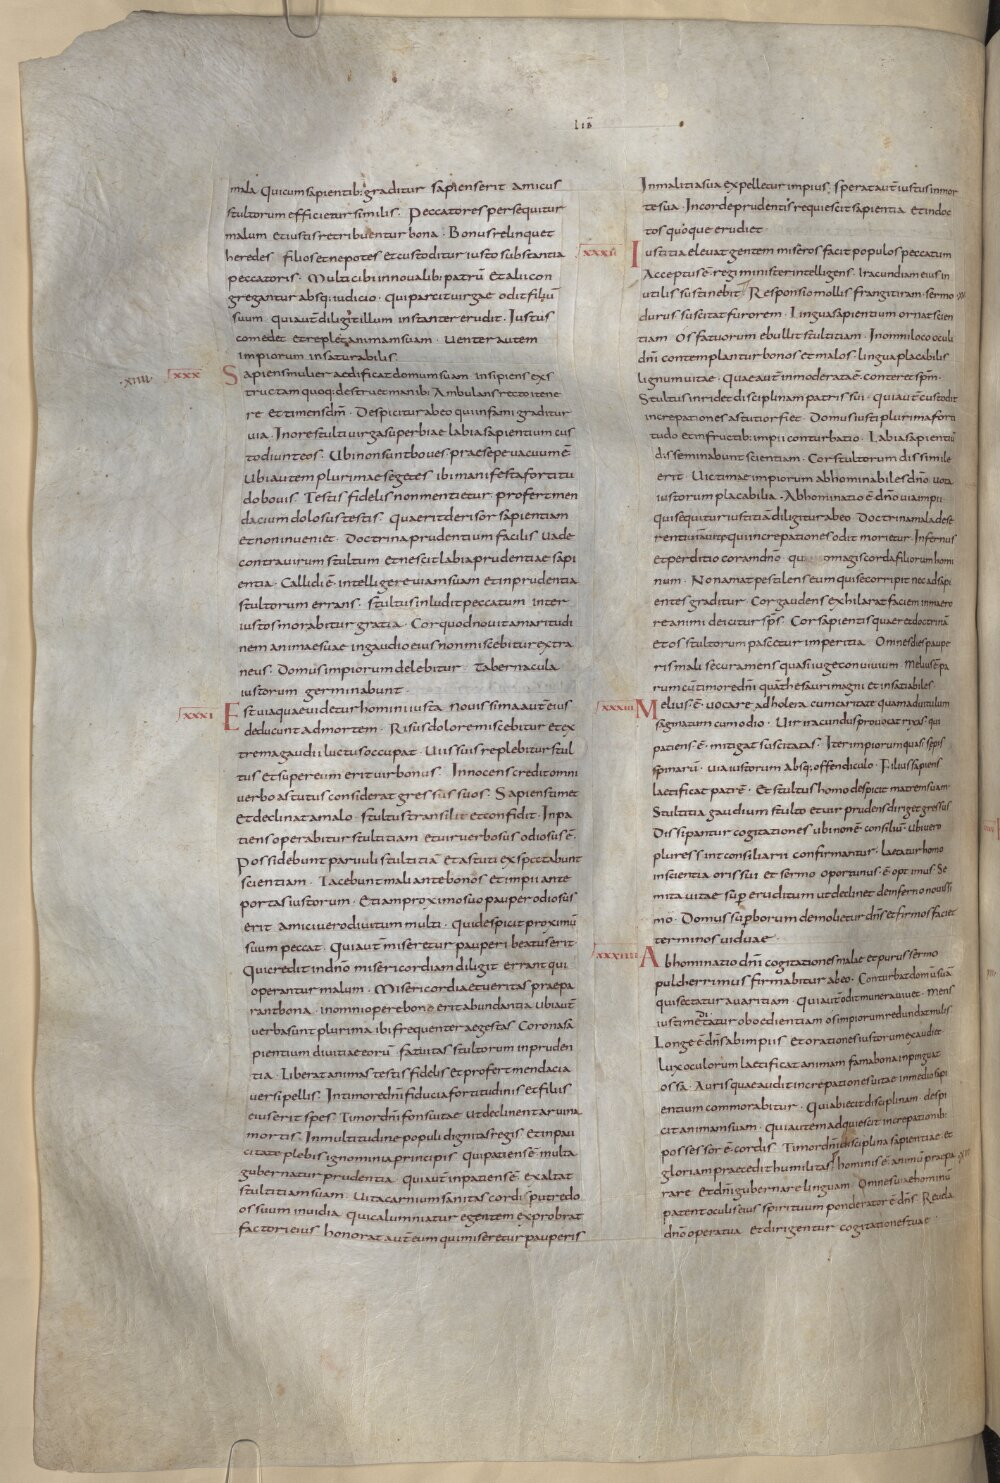 LIB
mala Quicumsapientib; graditur sapienserit Amicus
stultorum efficietur similis · Peccatores persequitur
malum et iustis retribuentur bona · Bonus relinquet
heredes filios et nepotes et custoditur iusto substantia
peccatoris · Multi cibi in novalib; patrū et alii con
gregantur absq; iudicio · Qui parcit virgae odit filiū
suum qui aut̄ diligit illum instanter erudit · Iustus
comedet et replet animam suam · Venter autem
impiorum insaturabilis
·XIIII· XXX Sapiens mulier aedificat domum suam insipiens exs
tructam quoq; destruet manib; Ambulans recto itene
re et timens dm̄ · Despicitur ab eo qui infami graditur
via · In ore stulti virga superbiae labia sapientium cus
todiunt eos · Ubi non sunt boves praesepe vacuum ē
Ubi autem plurimae segetes ibi manifesta fortitu
do bovis · Testis fidelis non mentietur profert men
dacium dolosus testis · Quaerit derisor sapientiam
et non inveniet · Doctrina prudentium facilis Vade
contra virum stultum et nescit labia prudentiae sapi
entia · Callidi ē intellegere viam suam et inprudentia
stultorum errans · Stultus inludit peccatum inter
iustos morabitur gratia · Cor quod novit amaritudi
nem animae suae in gaudio eius non miscebitur extra
neus · Domus impiorum delebitur tabernacula
iustorum germinabunt ·
XXXI Est via quae videtur homini iusta Novissima aut̄ eius
deducunt ad mortem · Risus dolore miscebitur et ex
trema gaudii luctus occupat · Viis suis replebitur stul
tus et super eum erit vir bonus · Innocens credit omni
verbo astutus considerat gressus suos · Sapiens timet
et declinat a malo · stultus transilit et confidit · Inpa
tiens operabitur stultitiam et vir versutus odiosus ē
Possidebunt parvuli stultitiā et astuti exspectabunt
scientiam · Iacebunt mali ante bonos et impii ante
portas iustorum · Etiam proximo suo pauper odiosus
erit amici vero divitum multi · Qui despicit proximū
suum peccat · Qui aut̄ miseretur pauperi beatus erit
Qui credit in dn̄o misericordiam diligit errant qui
operantur malum · Misericordia et veritas praepa
rant bona · in omni opere bono erit abundantia ubi aut̄
verba sunt plurima ibi frequenter aegestas Corona sa
pientium divitiae eorū · fatuitas stultorum inpruden
tia · Liberat animas testis fidelis et profert mendacia
versipellis · In timore dn̄i fiducia fortitudinis et filiis
eius erit spes · Timor dn̄i fons vitae Ut declinent a ruina
mortis · In multitudine populi dignitas regis et in pau
citate plebis ignominia principis · Qui patiens ē multa
gubernatur prudentia · Qui aut̄ inpatiens ē exaltat
stultitiam suam · Vita carnium sanitas cordis putredo
ossuum invidia · Qui calumniatur egentem exprobrat
factori eius honorat aut̄ eum qui miseretur pauperis
In malitia sua expelletur impius; sperat aut̄ iustus in mor
te sua · In corde prudentis requiescit sapientia et indoc
tos quoque erudiet
XXXII Iustitia elevat gentem miseros facit populos peccatum
Acceptus ē regi minister intelligens · Iracundiam eius in
utilis sustinebit · Responsio mollis frangit iram · sermo
durus suscitat furorem · Lingua sapientium ornat scien
tiam · Os fatuorum ebullit stultitiam · In omni loco oculi
dn̄i contemplantur bonos et malos · lingua placabilis
lignum vitae · Quae aut̄ inmoderata ē conteret spm̄ ·
Stultus inridet disciplinam patris sui · qui aut̄ custodit
increpationes astutior fiet · Domus iusti plurima forti
tudo et in fructib; impii conturbatio · Labia sapientiū
disseminabunt scientiam · Cor stultorum dissimile
erit · Victimae impiorum abhominabiles dn̄o vota
iustorum placabilia · Abhominatio ē dn̄o via impii
qui sequitur iustitiā diligitur ab eo Doctrina mala dese
renti viā vitę qui increpationes odit morietur · Infernus
et perditio coram dn̄o quanto magis corda filiorum homi
num · Non amat pestilens eum qui se corripit nec ad sapi
entes graditur · Cor gaudens exhilarat faciem in maero
re animi deicitur sp̄s · Cor sapientis quaeret doctrinā
et os stultorum pascetur imperitia · Omnes dies paupe
ris mali secura mens quasi iuge convivium · Melius ē pa
rum cū timore dn̄i quā thesauri magni et insatiabiles
XXXIII Melius ē vocare ad holera cum caritate quam ad vitulum
saginatum cum odio · Vir iracundus provocat rixas qui
patiens ē mitigat suscitatas · Iter impiorum quasi sepis
spinarū · via iustorum absq; offendiculo · Filius sapiens
laetificat patrē · Et stultus homo despicit matrem suam
Stultitia gaudium stulto et vir prudens diriget gressus
Dissipantur cogitationes ubi non ē consiliū · Ubi vero
plures sint consiliarii confirmantur · laetatur homo
in scientia oris sui et sermo oportunus ē optimus · Se
mita vitae sup̄ eruditum ut declinet de inferno novissi
mo · Domus sup̄borum demolietur dn̄s et firmos faciet
terminos viduae ·
XXXIIII Abhominatio dn̄i cogitationes malae et purus sermo
pulcherrimus firmabitur ab eo · Conturbat domū suā
qui sectatur avaritiam · Qui aut̄ odit munera vivet · Mens
iusti meditatur oboedientiam os impiorum redundat malis
Longe ē dn̄s ab impiis et orationes iustorum exaudiet
lux oculorum laetificat animam fama bona inpinguat
ossa · Auris quae audit increpationes vitae in medio sapi
entium commorabitur · Qui abiecit disciplinam despi
cit animam suam · Qui autem adquiescit increpationib;
possessor ē cordis · Timor dn̄i disciplina sapientiae et
gloriam praecedit humilitas hominis ē animū praepa
rare et dn̄i gubernare linguam · Omnes viae hominū
patent oculis eius spirituum ponderator ē dn̄s · Revela
dn̄o opera tua et dirigentur cogitationes tuae